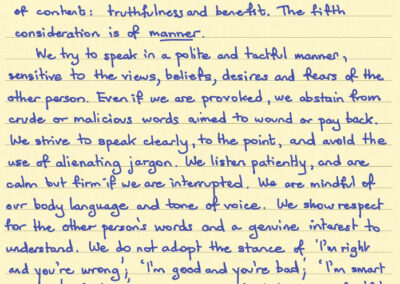 of content: truthfulness and benefit. The fifth
consideration is of manner.
We try to speak in a polite and tactful manner,
sensitive to the views, beliefs, desires and fears of the
other person. Even if we are provoked, we abstain from
crude or malicious words aimed to wound or pay back.
We strive to speak clearly, to the point, and avoid the
use of alienating jargon. We listen patiently, and are
calm but firm if we are interrupted. We are mindful of
our body language and tone of voice. We show respect
for the other person's words and a genuine interest to
understand. We do not adopt the stance of 'I'm right
and you're wrong'; 'I'm good and you're bad'; 'I'm smart